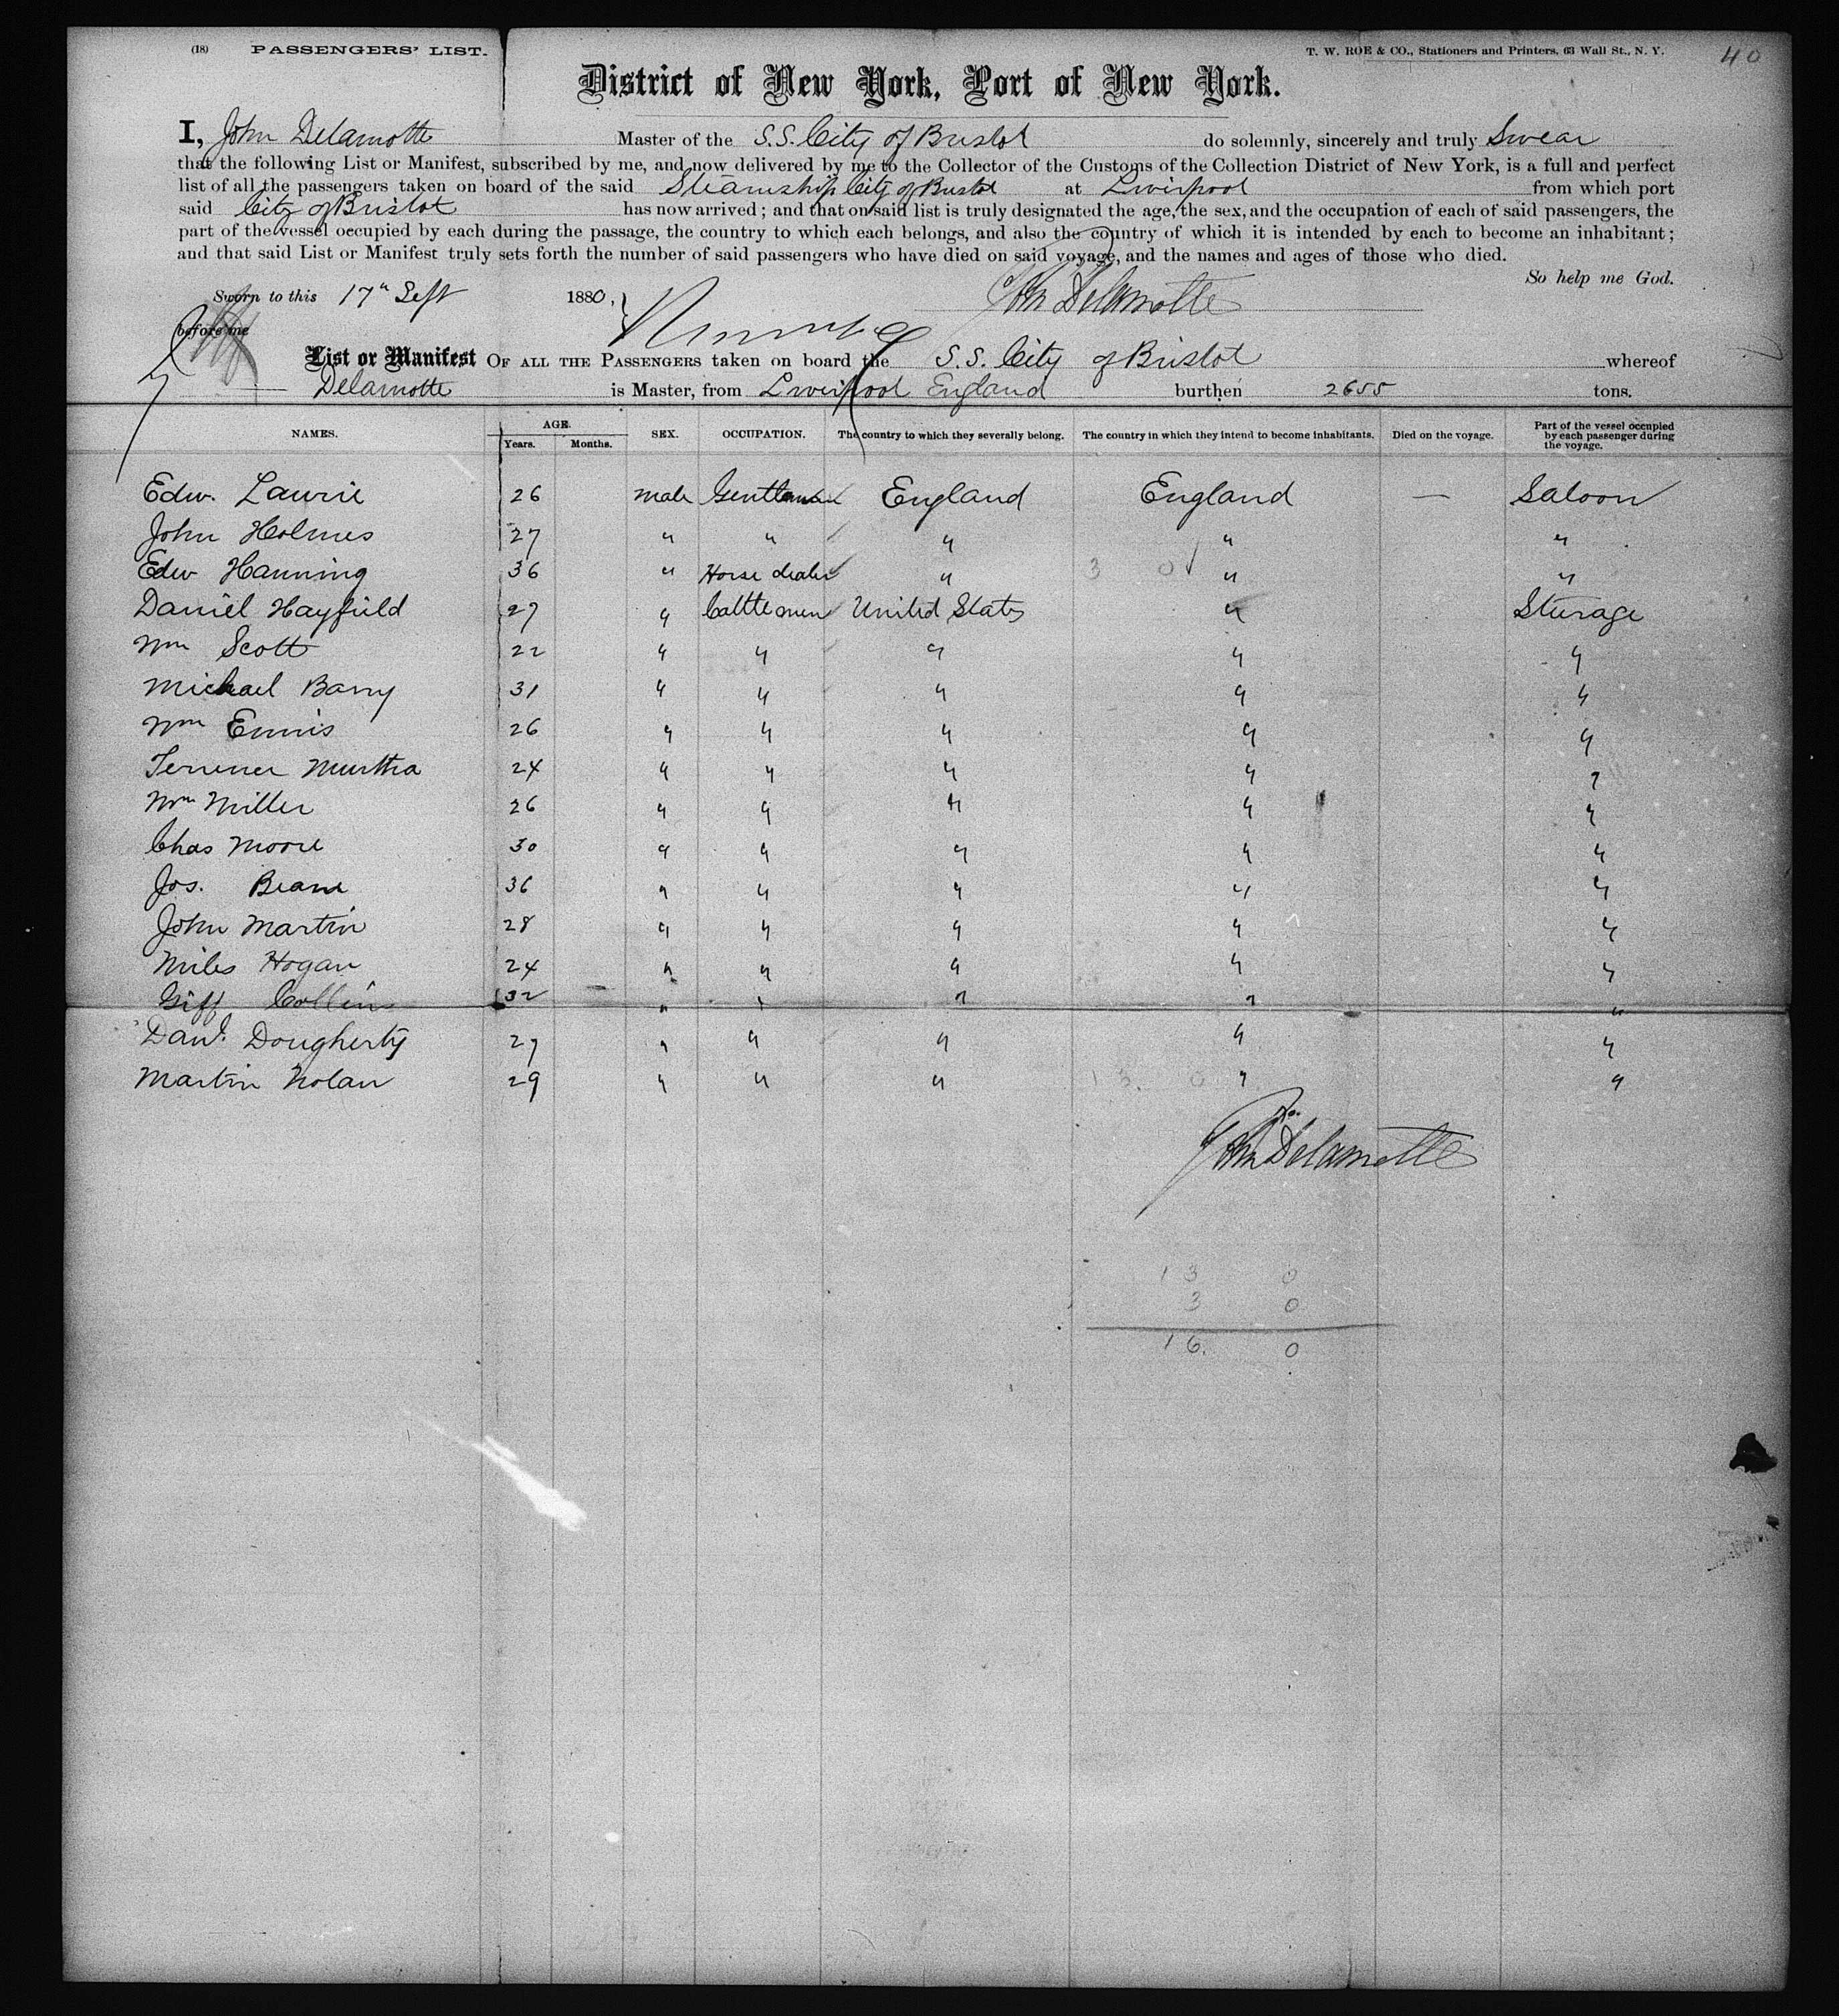 (18) PASSENGERS' LIST. T. W. ROE & CO., Stationers and Printers, 63 Wall St., N. Y. 40
District of New York, Port of New York.
I, John Delamotte Master of the S.S. City of Bristol do solemnly, sincerely and truly Swear
that the following List or Manifest, subscribed by me, and now delivered by me to the Collector of the Customs of the Collection District of New York, is a full and perfect
list of all the passengers taken on board of the said Steamship City of Bristol at Liverpool from which port
said City of Bristol has now arrived; and that on said list is truly designated the age, the sex, and the occupation of each of said passengers, the
part of the vessel occupied by each during the passage, the country to which each belongs, and also the country of which it is intended by each to become an inhabitant;
and that said List or Manifest truly sets forth the number of said passengers who have died on said voyage, and the names and ages of those who died.
So help me God.
Sworn to this 17th Sept 1880, John Delamotte
before me
List or Manifest OF ALL THE PASSENGERS taken on board the S.S. City of Bristol whereof
Delamotte is Master, from Liverpool England burthen 2655 tons.
NAMES. AGE. Years. Months. SEX. OCCUPATION. The country to which they severally belong. The country in which they intend to become inhabitants. Died on the voyage. Part of the vessel occupied by each passenger during the voyage.
Edw. Laurie 26 male Gentleman England England — Saloon
John Holmes 27 " " " " "
Edw Hanning 36 " Horse dealer " 3 0 " "
Daniel Hayfield 27 " Cattlemen United States " Steerage
Wm Scott 22 " " " " "
Michael Barry 31 " " " " "
Wm Ennis 26 " " " " "
Terrence Murtha 24 " " " " "
Wm Miller 26 " " " " "
Chas Moore 30 " " " " "
Jos. Beane 36 " " " " "
John Martin 28 " " " " "
Miles Hogan 24 " " " " "
Giff Collins 32 " " " " "
Danl. Dougherty 27 " " " " "
Martin Nolan 29 " " " 13. 0 " "
John Delamotte
13 0
3 0
16. 0